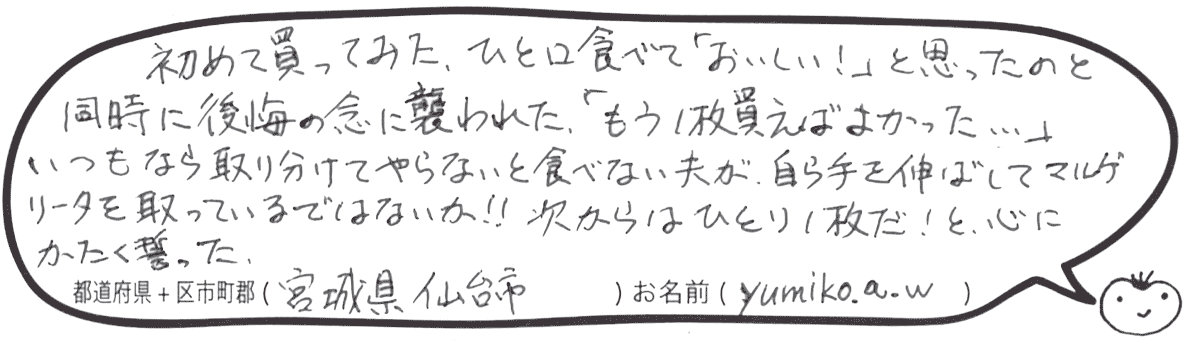 初めて買ってみた、ひと口食べて「おいしい!」と思ったのと
同時に後悔の念に襲われた、「もう1枚買えばよかった…」
いつもなら取り分けてやらないと食べない夫が、自ら手を伸ばしてマルゲ
リータを取っているではないか!! 次からはひとり1枚だ!と、心に
かたく誓った、
都道府県+区市町郡(宮城県仙台市)お名前(yumiko.a.w)